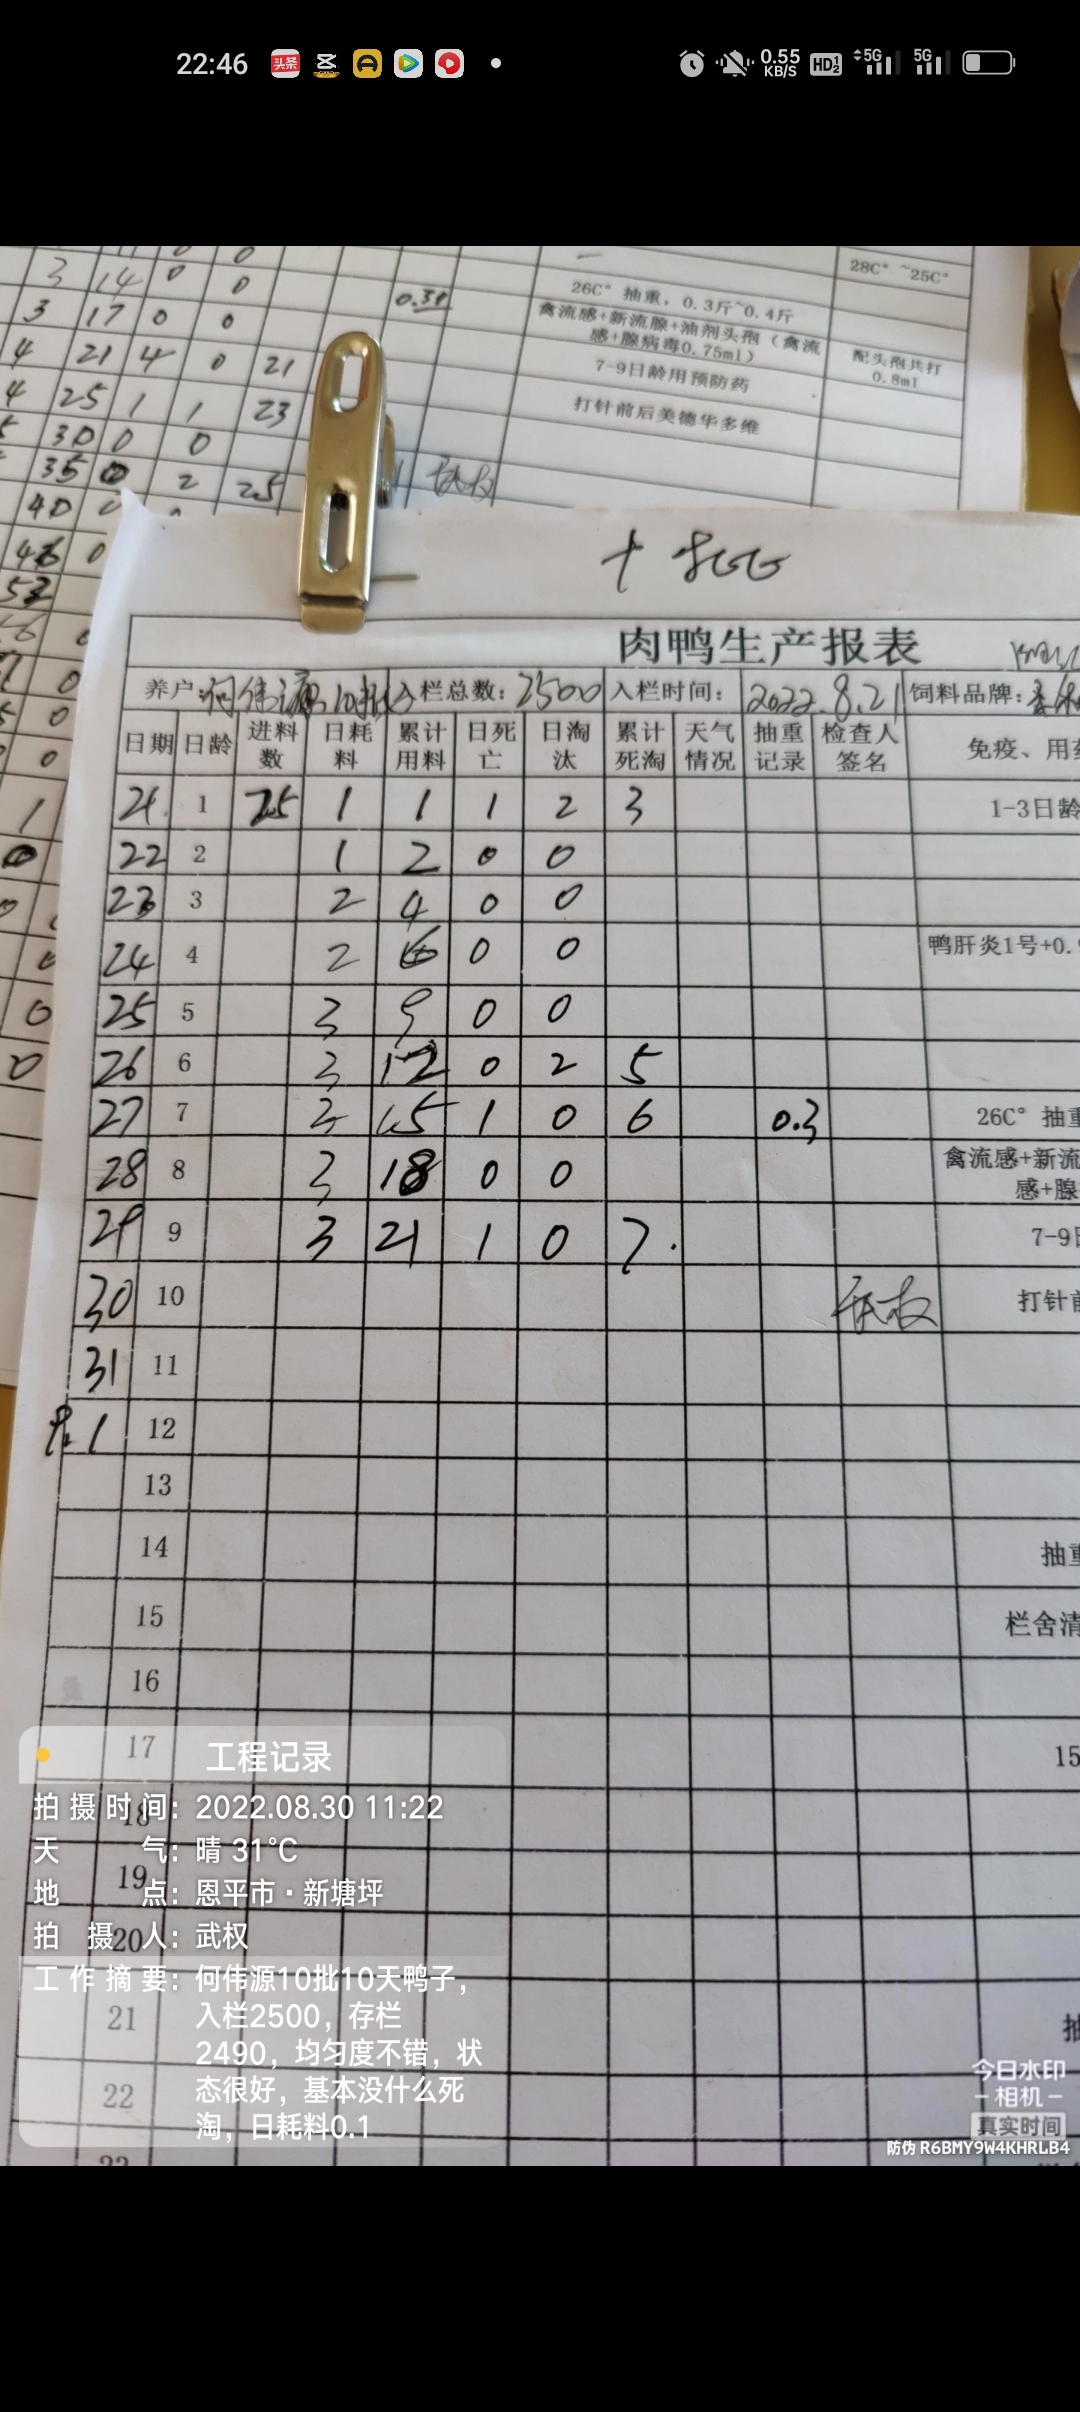 22:46 头条 0.55 KB/S HD 5G 5G
3 14 0 0 28C°~25C°
3 17 0 0 26C° 抽重，0.3斤~0.4斤
4 21 4 0 21 禽流感+新流腺+油剂头孢（禽流感+腺病毒0.75ml） 配头孢共打0.8ml
4 25 1 1 23 7-9日龄用预防药
30 0 0 打针前后美德华多维
35 0 2 25
40
肉鸭生产报表
养户: 何伟源10批 入栏总数: 2500 入栏时间: 2022.8.21 饲料品牌:
日期 日龄 进料数 日耗料 累计用料 日死亡 日淘汰 累计死淘 天气情况 抽重记录 检查人签名 免疫、用
21 1 25 1 1 1 2 3 1-3日龄
22 2 1 2 0 0
23 3 2 4 0 0
24 4 2 6 0 0 鸭肝炎1号+0.
25 5 3 9 0 0
26 6 3 12 0 2 5
27 7 3 15 1 0 6 0.3 26C° 抽重
28 8 3 18 0 0 禽流感+新流 感+腺
29 9 3 21 1 0 7. 7-9日
30 10 武权 打针前
31 11
9.1 12
13
14 抽重
15 栏舍清
16
17 15
18
19
20
21
22
工程记录
拍摄时间: 2022.08.30 11:22
天气: 晴 31°C
地点: 恩平市·新塘坪
拍摄人: 武权
工作摘要: 何伟源10批10天鸭子，
入栏2500，存栏
2490，均匀度不错，状
态很好，基本没什么死
淘，日耗料0.1
今日水印
-相机-
真实时间
防伪 R6BMY9W4KHRLB4